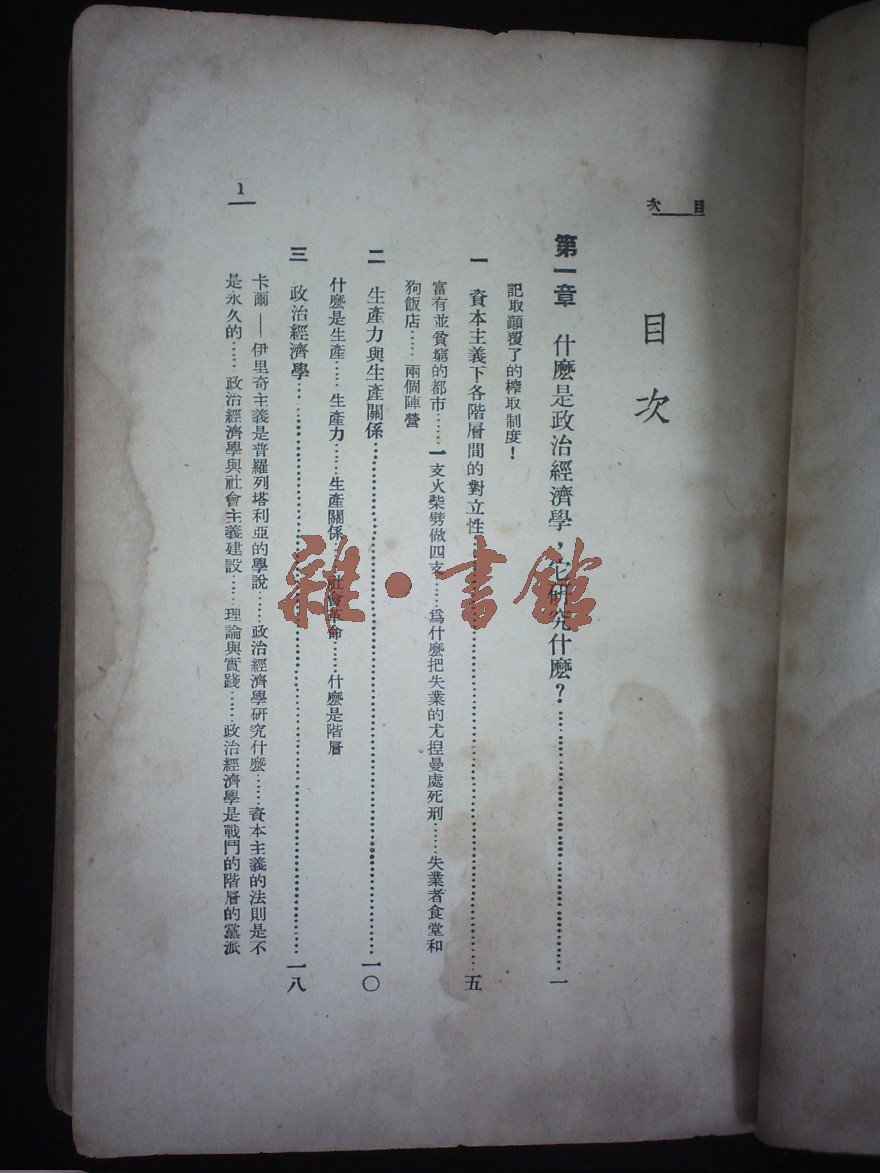 目次
目次
第一章 什麼是政治經濟學，它研究什麼？……一
記取顚覆了的榨取制度！
一 資本主義下各階層間的對立性……五
富有並貧窮的都市……一支火柴劈做四支……爲什麼把失業的尤揑曼處死刑……失業者食堂和
狗飯店……兩個陣營
二 生產力與生產關係……一〇
什麼是生產……生產力……生產關係……社會革命……什麼是階層
三 政治經濟學……一八
卡爾——伊里奇主義是普羅列塔利亞的學說……政治經濟學硏究什麼……資本主義的法則是不
是永久的……政治經濟學與社會主義建設……理論與實踐……政治經濟學是戰鬥的階層的黨派
1
雜·書館